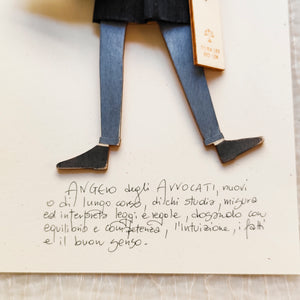 ANGELO degli AVVOCATI, nuovi
o di lungo corso, di chi studia, misura
ed interpreta leggi e regole, dosando con
equilibrio e competenza, l'intuizione, i fatti
e il buon senso.